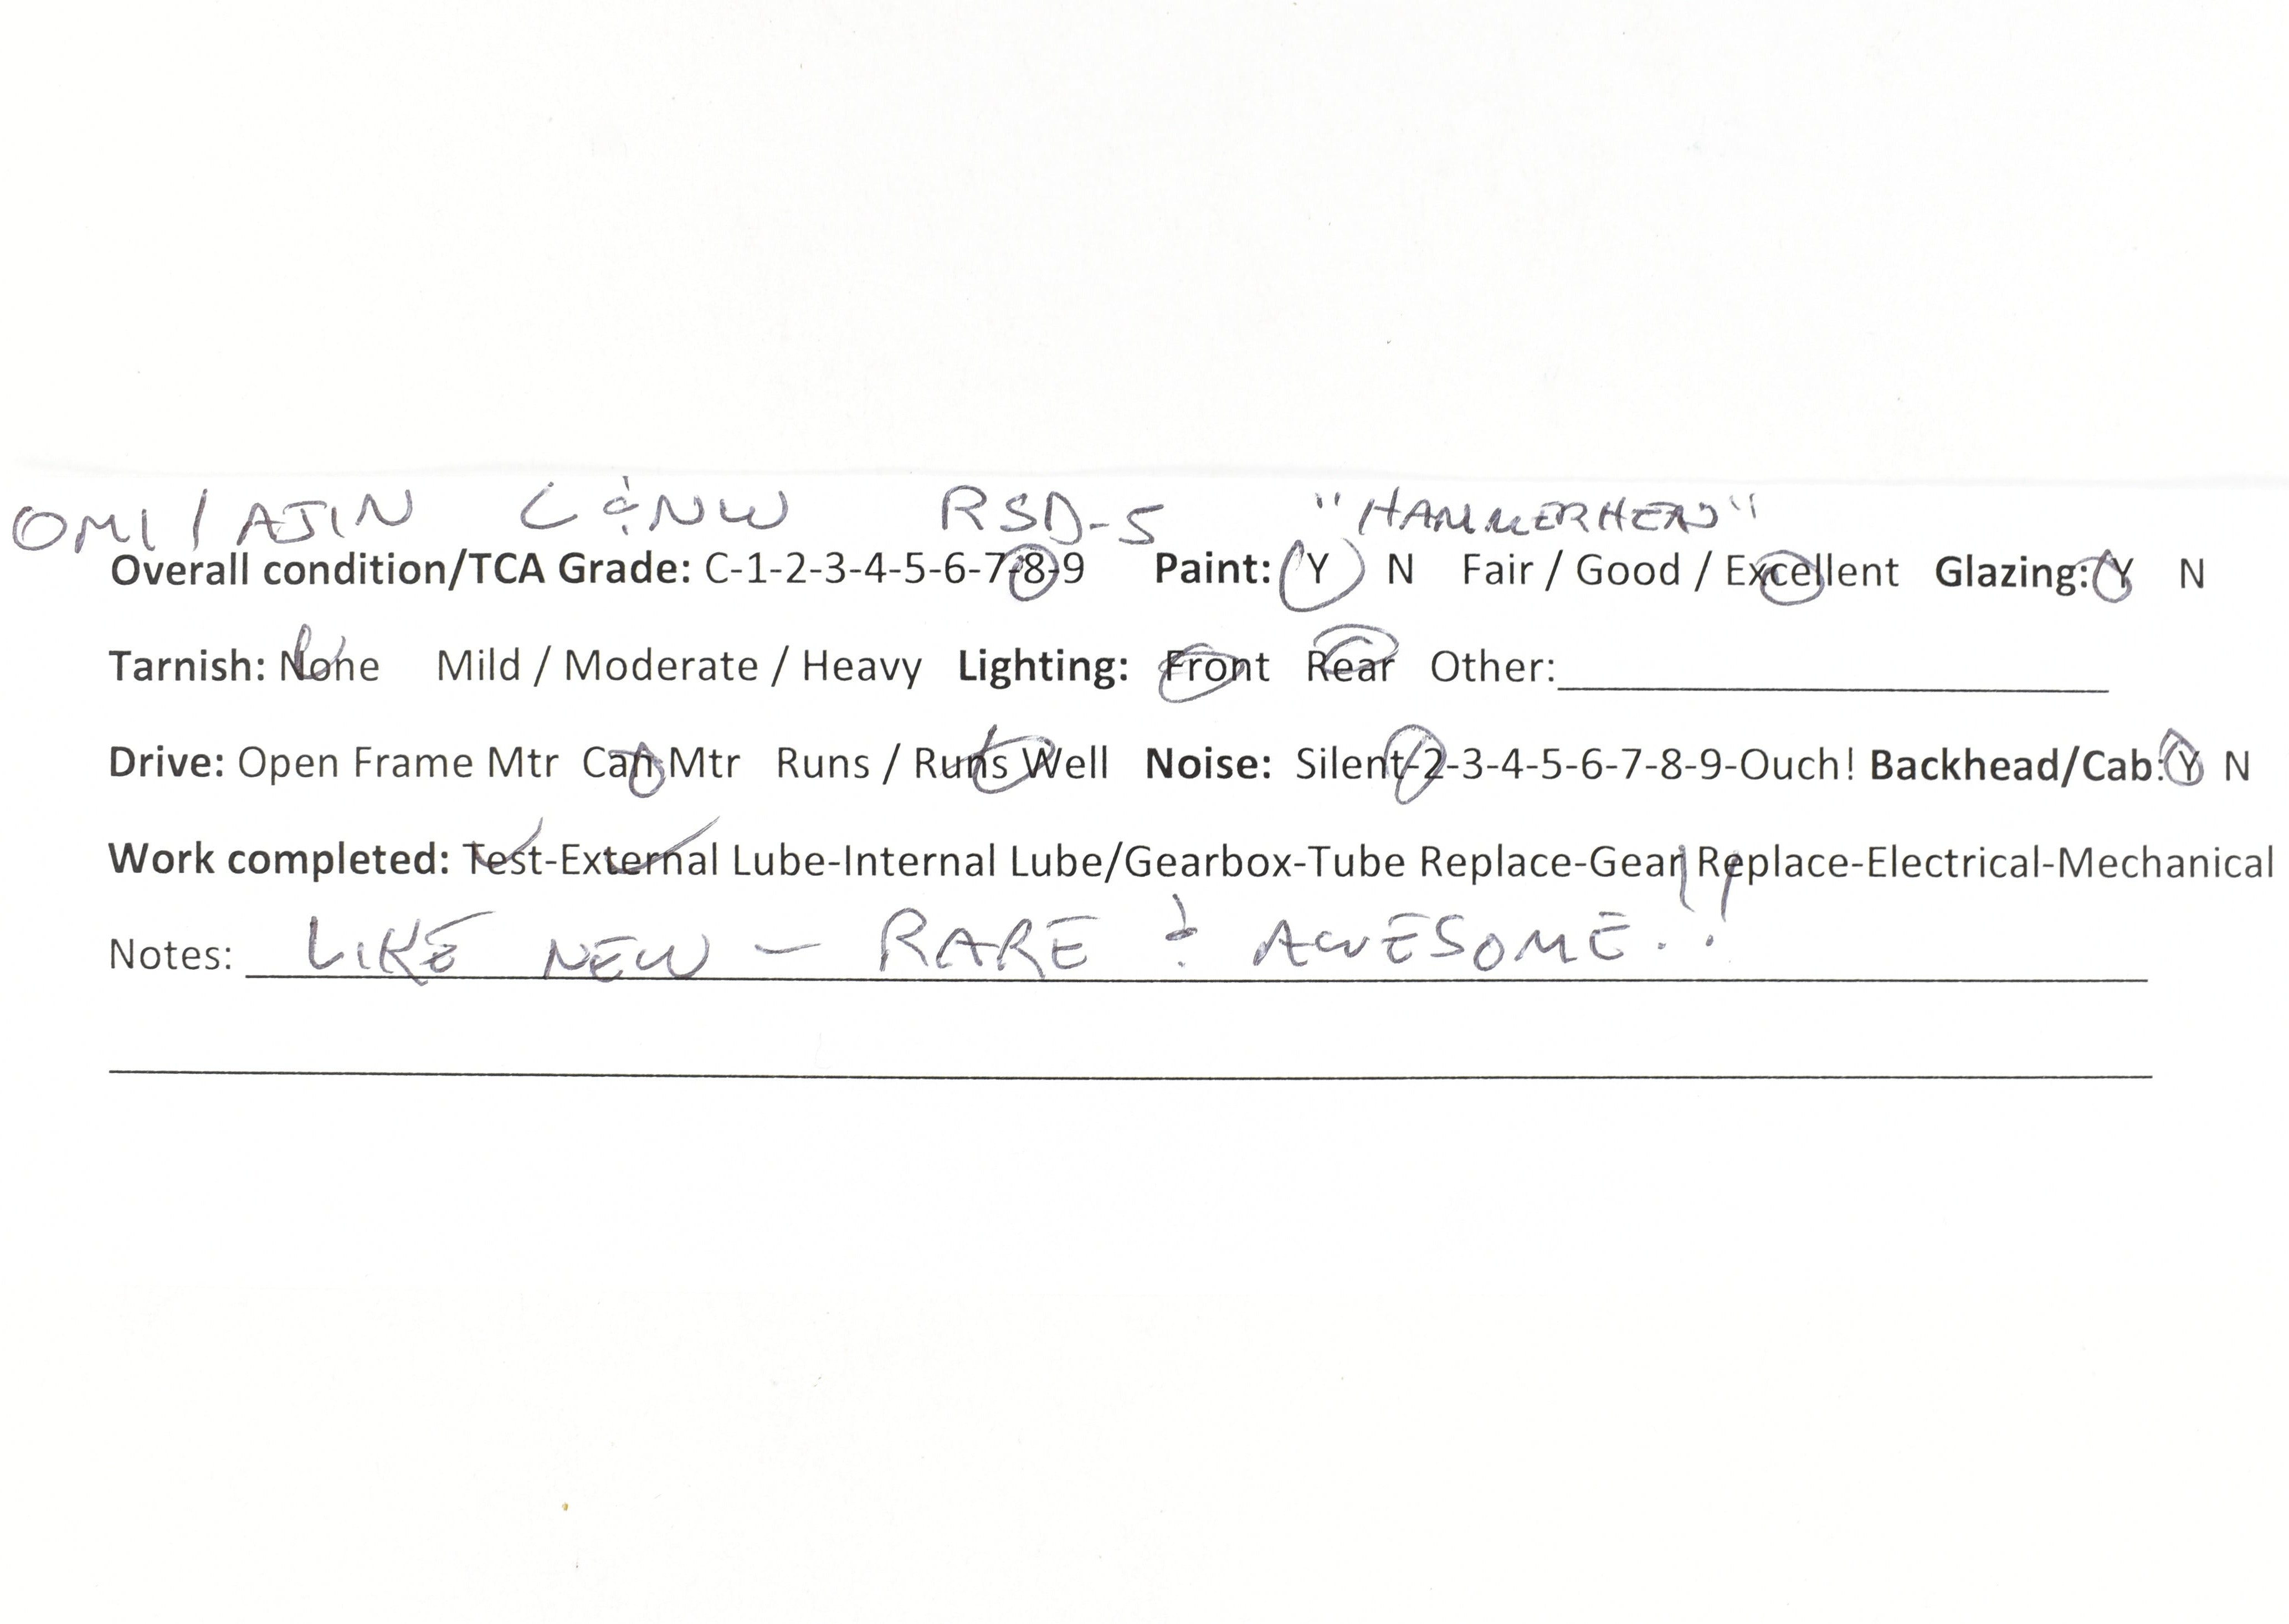 OMI / AJIN C&NW RSD-5 "HAMMERHEAD"
Overall condition/TCA Grade: C-1-2-3-4-5-6-7-8-9 Paint: Y N Fair / Good / Excellent Glazing: Y N
Tarnish: None Mild / Moderate / Heavy Lighting: Front Rear Other:
Drive: Open Frame Mtr Can Mtr Runs / Runs Well Noise: Silent-2-3-4-5-6-7-8-9-Ouch! Backhead/Cab: Y N
Work completed: Test-External Lube-Internal Lube/Gearbox-Tube Replace-Gear Replace-Electrical-Mechanical
Notes: LIKE NEW - RARE & AWESOME!!